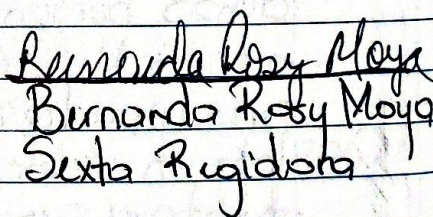 Bernarda Rosy Moya
Bernanda Rosy Moya
Sexta Regidora